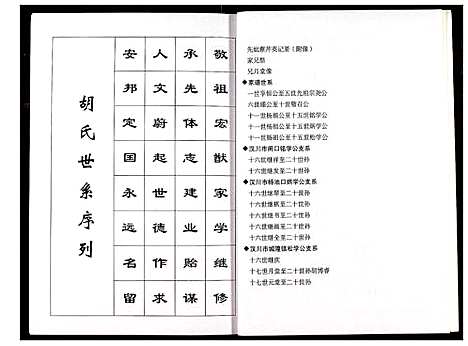 胡氏世系序列
敬祖宏猷建学继修
承先体志家业贻谋
人文蔚起世德作求
安邦定国永远名留
家兄
兄月堂像
◆家谱世系
一世孚恒公至五世先祖宗尧公
六世瑶公至十世敬召公
十一世杨祖公至十五世铭学公
十一世杨祖公至十五世炳学公
十一世杨祖公至十五世松学公
◆汉川市闸口铭学公支系
十六世继祥至二十世孙
十六世继发至二十世孙
◆汉川市杨池口炳学公支系
十六世继翠至二十世孙
十六世继祺至二十世孙
十六世继书至二十世孙
十六世继文至二十世孙
十六世继全至二十世孙
◆汉川市城隍镇松学公支系
十六世继庆
十七世月堂至二十世孙胡博睿
十七世元堂至二十世孙